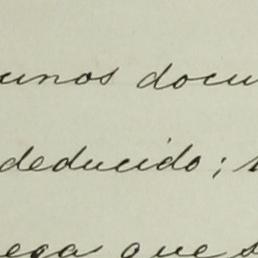 unos docu
deducido;
ega que s